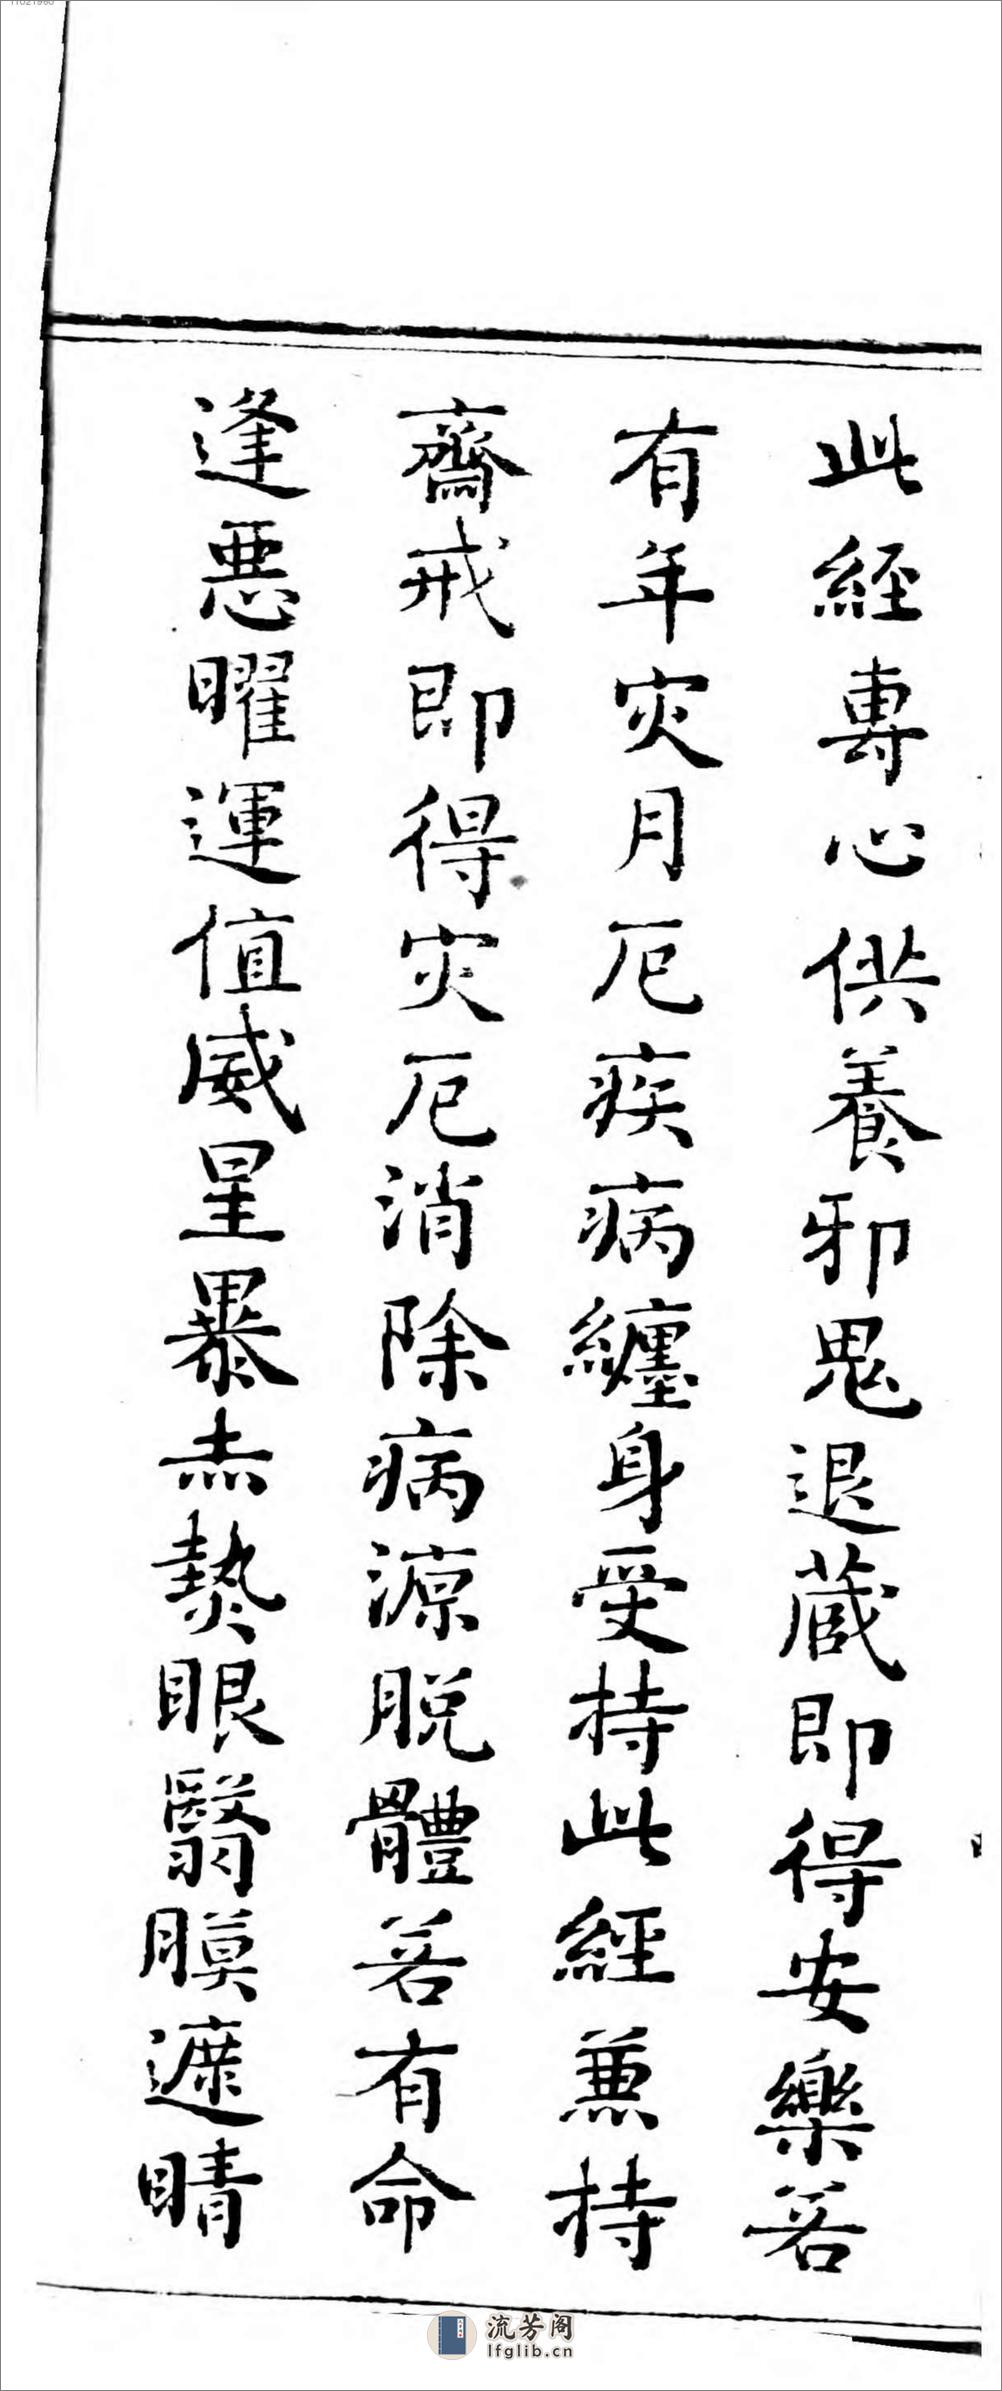 此經專心供養邪鬼退藏即得安樂若
有年災月厄疾病纏身受持此經兼持
齋戒即得灾厄消除病源脱體若有命
逢惡曜運值威星暴赤熱眼翳膜遮睛
流芳阁
lfglib.cn